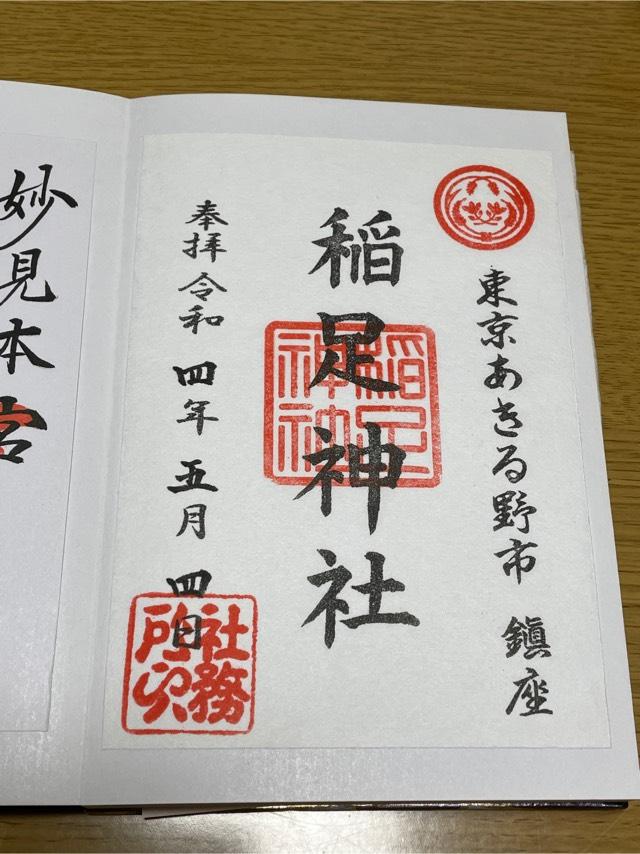 東京あきる野市 鎮座
稲足神社
稲足
神社
奉拝 令和 四年 五月 四日
社務
所印
妙見本宮